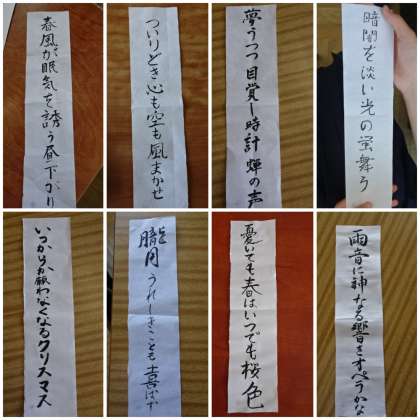 春風が眠気を誘う昼下がり
ついりどき心も空も風まかせ
夢うつつ目覚し時計蝉の声
暗闇を淡い光の蛍舞う
いつからか願わなくなるクリスマス
朧月うれしきことも喜ばず
憂いても春はいつでも桜色
雨音に神なる響きオペラかな